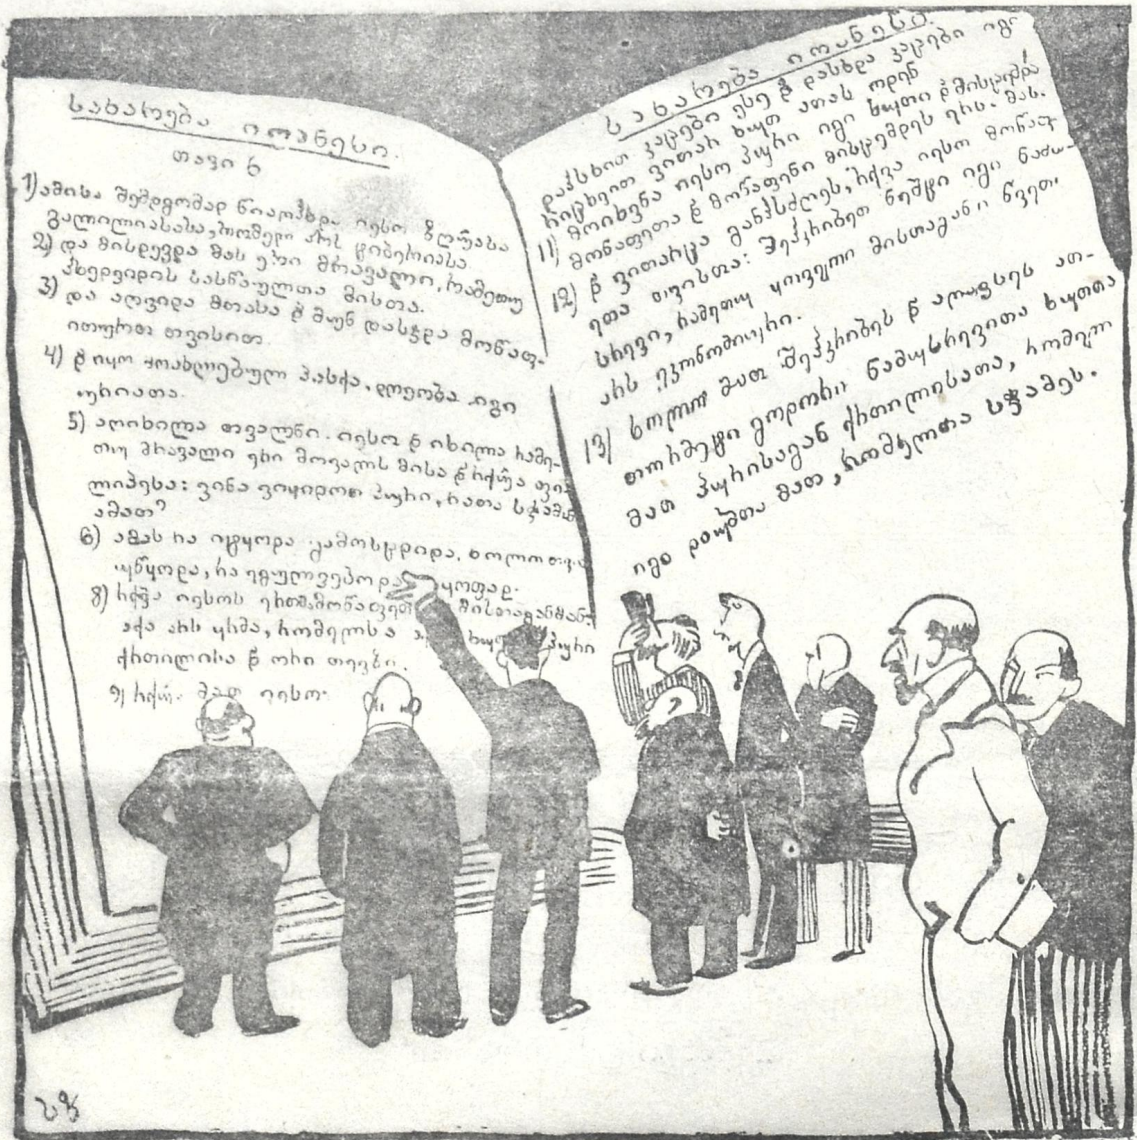 სახარება იოანესი.
თავი ნ
1) ამისა შემდგომად წიაღჰხდა იესო ზღუასა
გალილიასასა, რომელ არს ტიბერიასა.
2) და მისდევდა მას ერი მრავალი, რამეთუ
ჰხედვიდის სასწაულთა მისთა.
3) და აღვიდა მთასა და მუნ დასჯდა მოწაფ-
ითურთ თვისით.
4) და იყო მოახლებულ პასქა. დღეობა იგი
ურიათა.
5) აღიხილა თვალნი. იესო და იხილა რამე-
თუ მრავალი ერი მოვალს მისა და რქუა ფი-
ლიპესა: ვინა ვიყიდოთ პური, რათა სჭამონ
ამათ?
6) ამას რა იტყოდა გამოსცდიდა. ხოლო თვით
უწყოდა, რა ეგულვებოდა ყოფად.
8) რქვა იესოს ერთმა მოწაფეთ მისთაგანმან
აქა არს ყრმა, რომელსა ხუთ პური
ქრთილისა და ორი თევზი.
9) რქუა. მათ იესო
სახარება იოანესი.
დაჰსხით კაცები ესე და დასხდა კაცები იგი
რიცხვით ვითარ ხუთ ათას ოდენ
11) მოიხვნა იესო პური იგი ხუთი და მისცა
მოწაფეთა და მოწაფენი მისცემდეს ერს. მას.
12) და ვითარცა განჰსძღეს, რქვა იესო მოწაფ-
ეთა თვისთა: შეჰკრიბეთ ნეშტი იგი ნამუ-
სრევი, რამეთუ ყოველი მისთაგანი წვეთი
არს ეკონომიური.
13) ხოლო მათ შეჰკრიბეს და აღავსეს ათ-
თორმეტი გოდორი ნამუსრევითა ხუთთა
მათ პურისაგან ქრთილისათა, რომელი
იგი დაუშთა მათ, რომელთა სჭამეს.